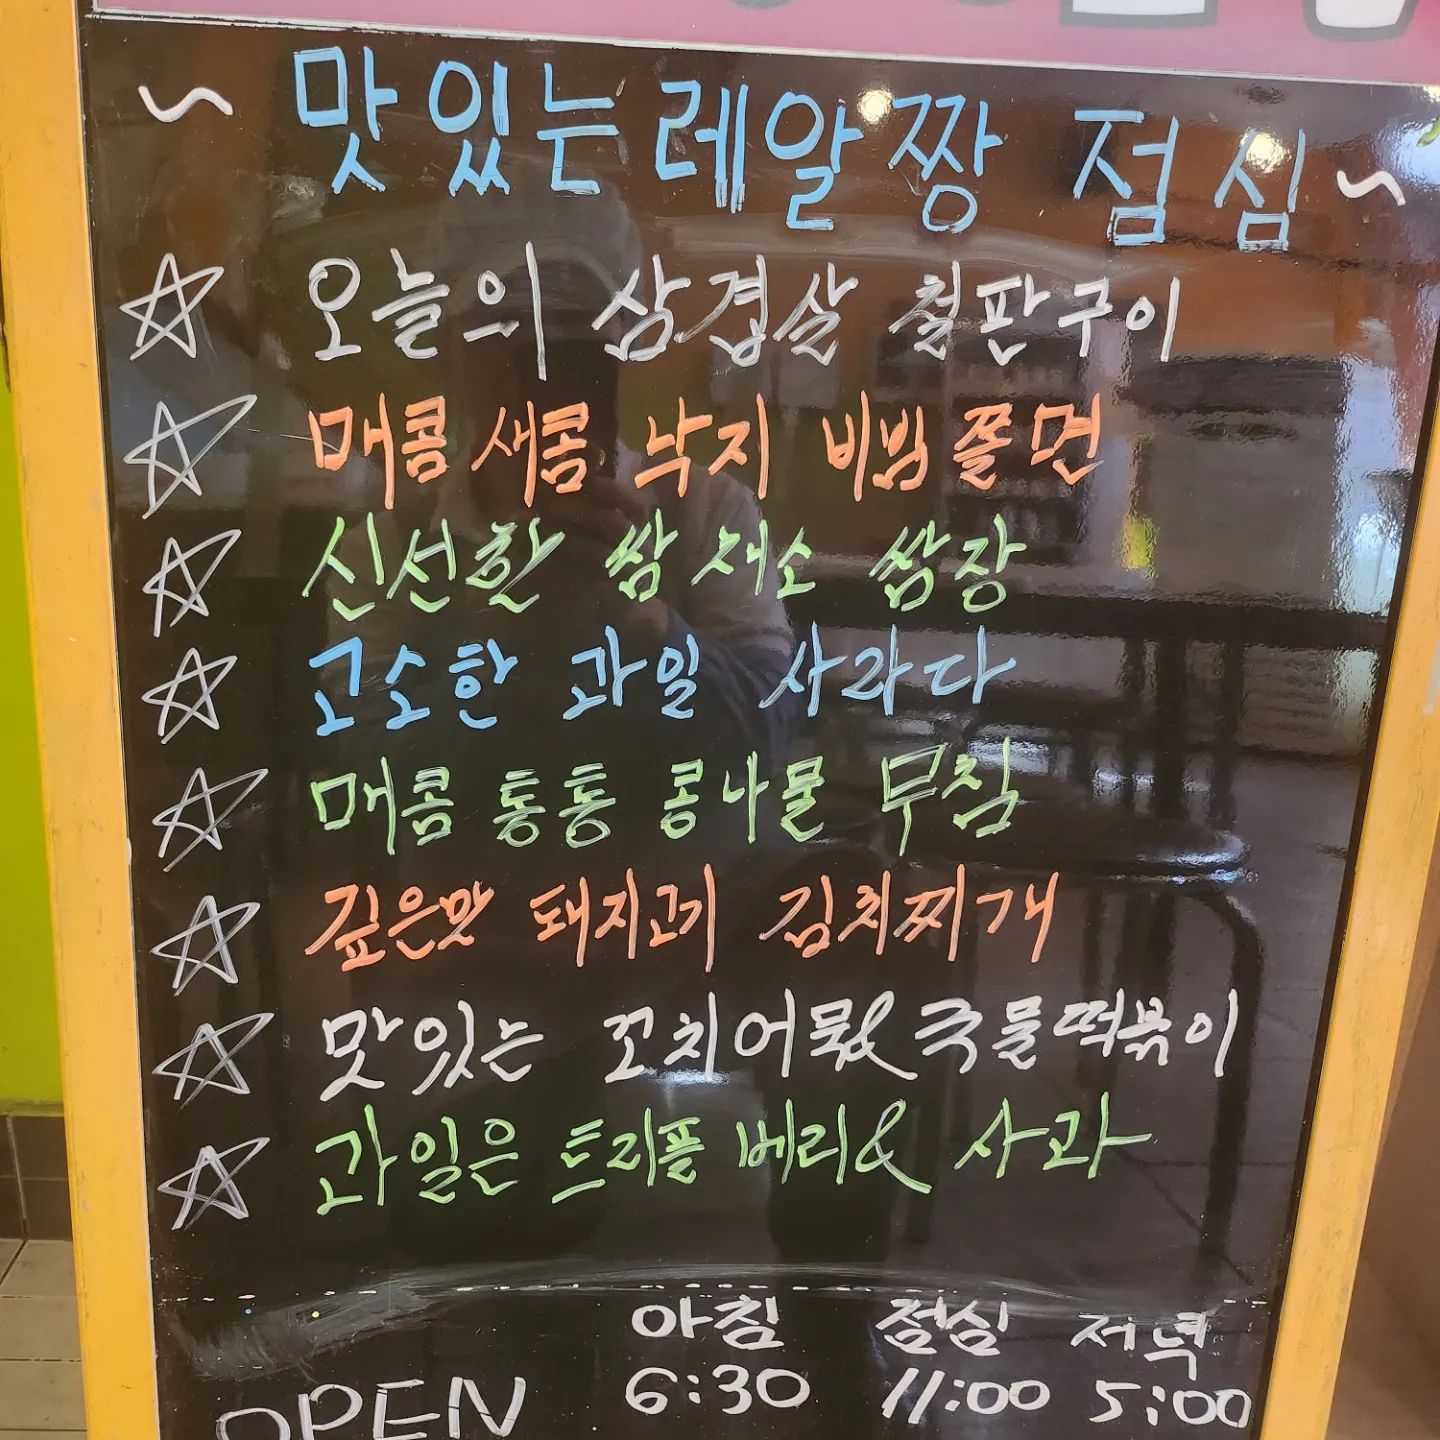 ~ 맛있는 레알 짱 점심 ~
☆ 오늘의 삼겹살 철판구이
☆ 매콤 새콤 낙지 비빔 쫄면
☆ 신선한 쌈 채소 쌈장
☆ 고소한 과일 사라다
☆ 매콤 통통 콩나물 무침
☆ 깊은맛 돼지고기 김치찌개
☆ 맛있는 꼬치어묵& 국물떡볶이
☆ 과일은 트리플 베리& 사과
아침 점심 저녁
OPEN 6:30 11:00 5:00